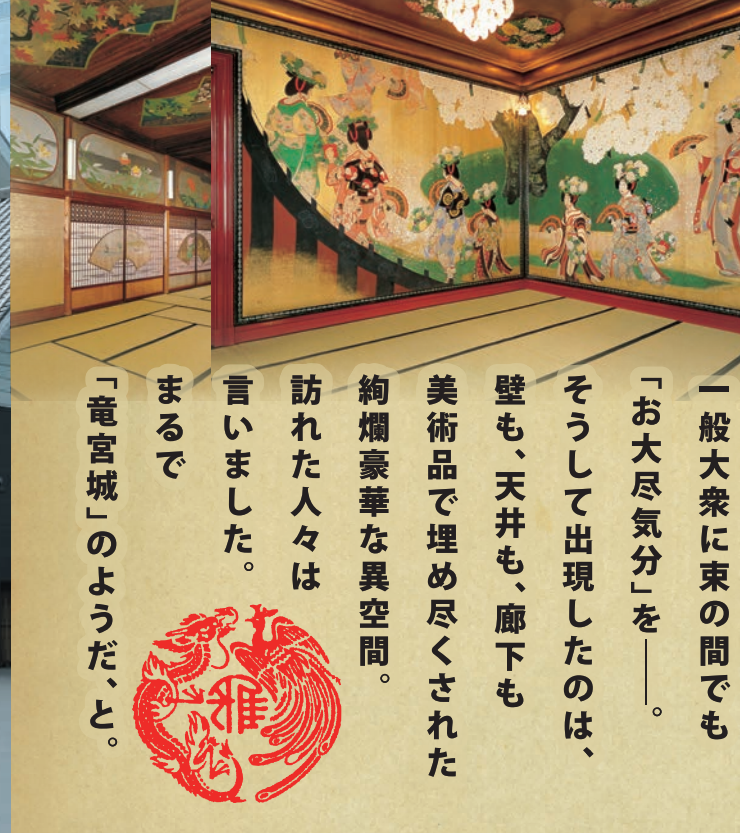 一般大衆に束の間でも
「お大尽気分」を――。
そうして出現したのは、
壁も、天井も、廊下も
美術品で埋め尽くされた
絢爛豪華な異空間。
訪れた人々は
言いました。
まるで
「竜宮城」のようだ、と。